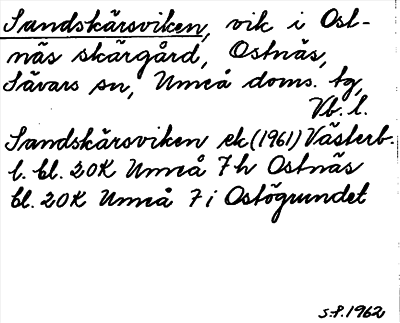 Sandskärsviken, vik i Ost-
näs skärgård, Ostnäs,
Sävars sn, Umeå doms. tg,
Vb. l.
Sandskärsviken ek (1961) Västerb.
l. bl. 20K Umeå 7h Ostnäs
bl. 20K Umeå 7i Ostögrundet
S.F. 1962